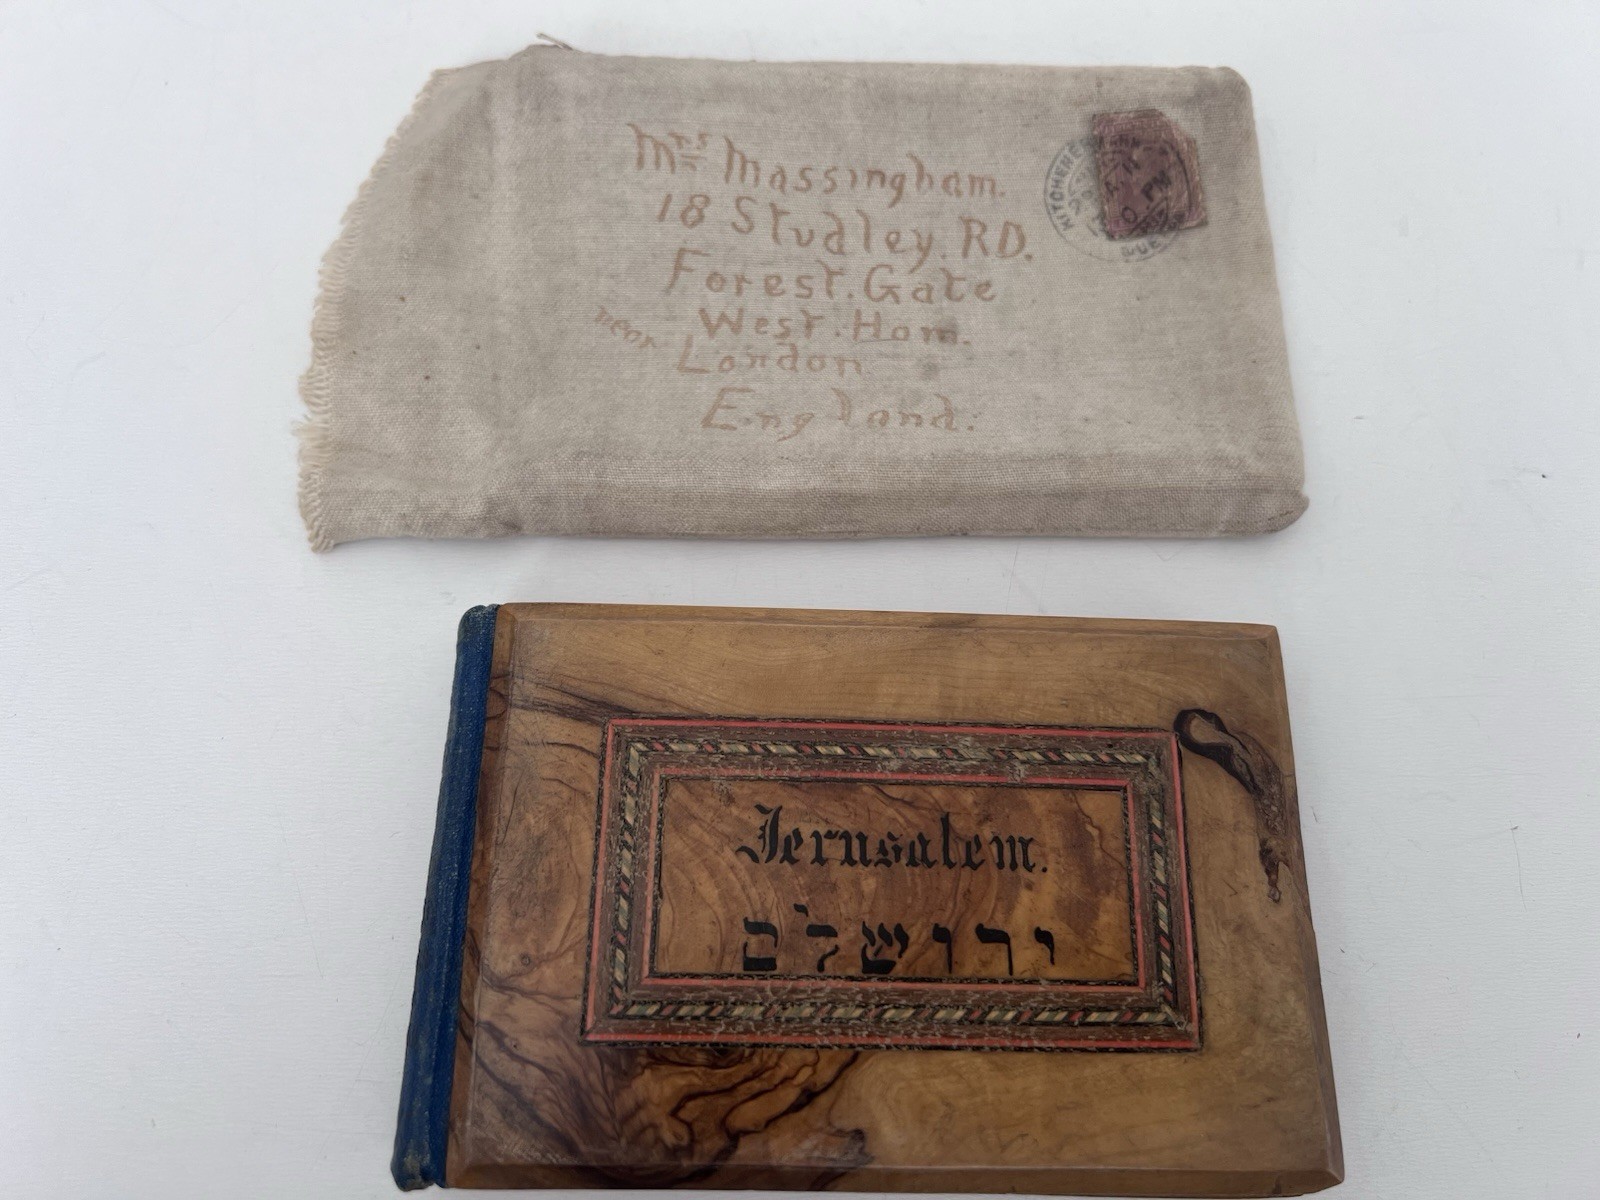 Mrs Massingham.
18 Studley. RD.
Forest. Gate
West. Ham.
near London
England.
Jerusalem.
ירושלים